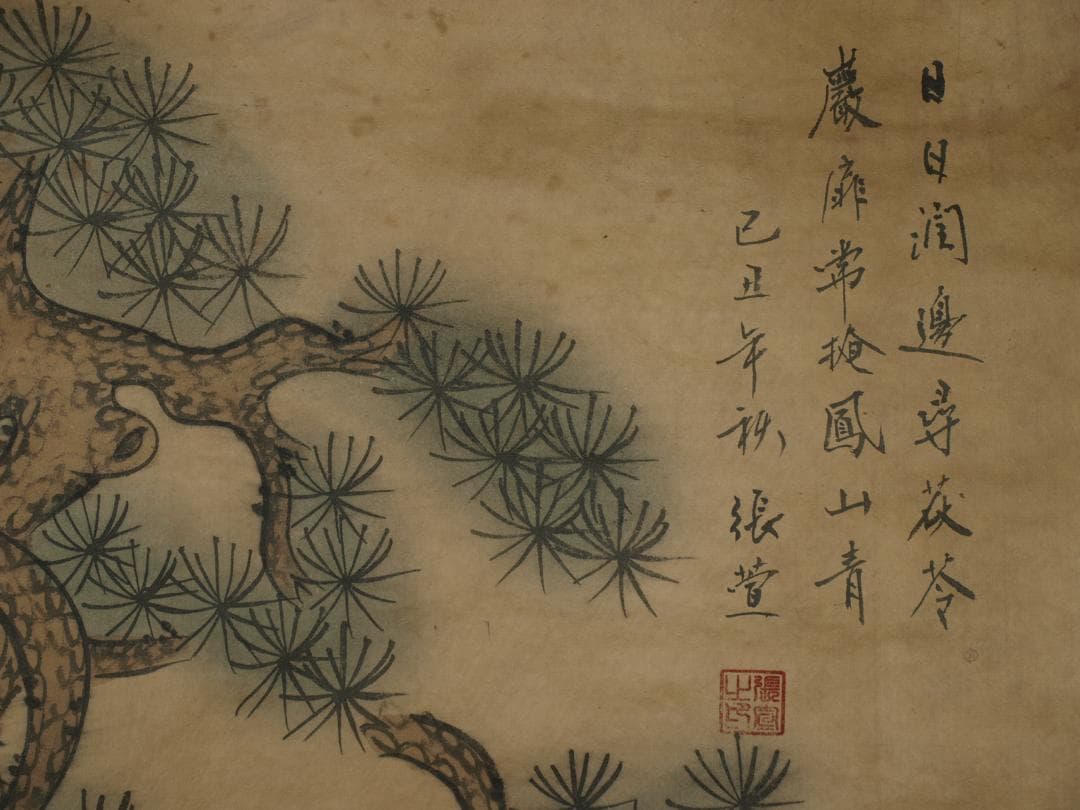 日日澗邊尋茯苓
巖扉常掩鳳山青
己丑年秋 張萱
張宣之印